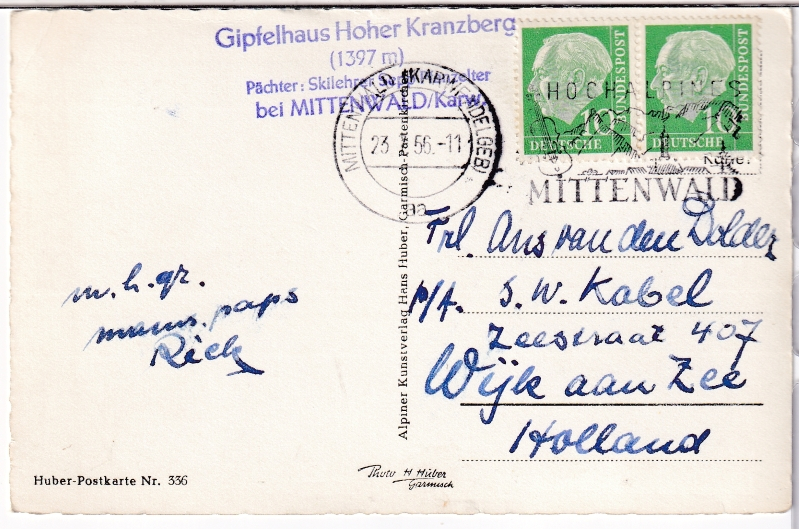 Gipfelhaus Hoher Kranzberg
(1397 m)
Pächter: Skilehrer
bei MITTENWALD/Karw.
MITTENWALD (KARWENDELGEB)
23 56.-11
aa
HOCHALPINES
MITTENWALD
10
DEUTSCHE
BUNDESPOST
10
DEUTSCHE
BUNDESPOST
m. h. gr.
mams. paps
Rick
Huber-Postkarte Nr. 336
Alpiner Kunstverlag Hans Huber, Garmisch-Partenkirchen
Photo H Huber
Garmisch
Frl. Ans van den Dolder
p/A. S. W. Kabel
Zeestraat 407
Wijk aan Zee
Holland